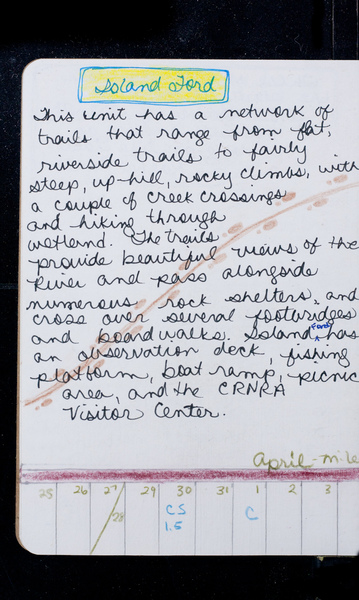 Island Ford
This unit has a network of
trails that range from flat,
riverside trails to fairly
steep, up-hill, rocky climbs, with
a couple of creek crossings
and hiking through
wetland. The trails
provide beautiful views of the
River and pass alongside
numerous rock shelters, and
cross over several footbridges
and boardwalks. Island Ford has
an observation deck, fishing
platform, boat ramp, picnic
area, and the CRNRA
Visitor Center.
April
25 26 27/28 29 30 31 1 2 3
CS C
1.5